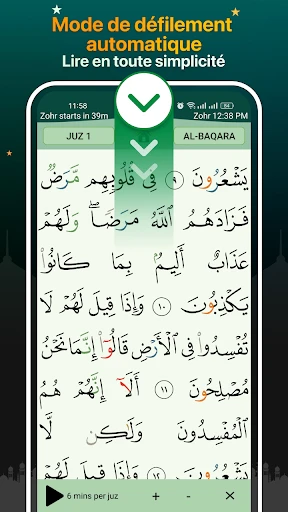 Mode de défilement
automatique
Lire en toute simplicité
11:58
Zohr starts in 39m
Zohr 12:38 PM
JUZ 1
AL-BAQARA
يَشْعُرُونَ ٩ فِي قُلُوبِهِم مَّرَضٌ
فَزَادَهُمُ ٱللَّهُ مَرَضًا ۖ وَلَهُمْ
عَذَابٌ أَلِيمٌۢ بِمَا كَانُوا۟
يَكْذِبُونَ ١٠ وَإِذَا قِيلَ لَهُمْ لَا
تُفْسِدُوا۟ فِي ٱلْأَرْضِ قَالُوٓا۟ إِنَّمَا نَحْنُ
مُصْلِحُونَ ١١ أَلَآ إِنَّهُمْ هُمُ
ٱلْمُفْسِدُونَ وَلَٰكِن لَّا
6 mins per juz + -